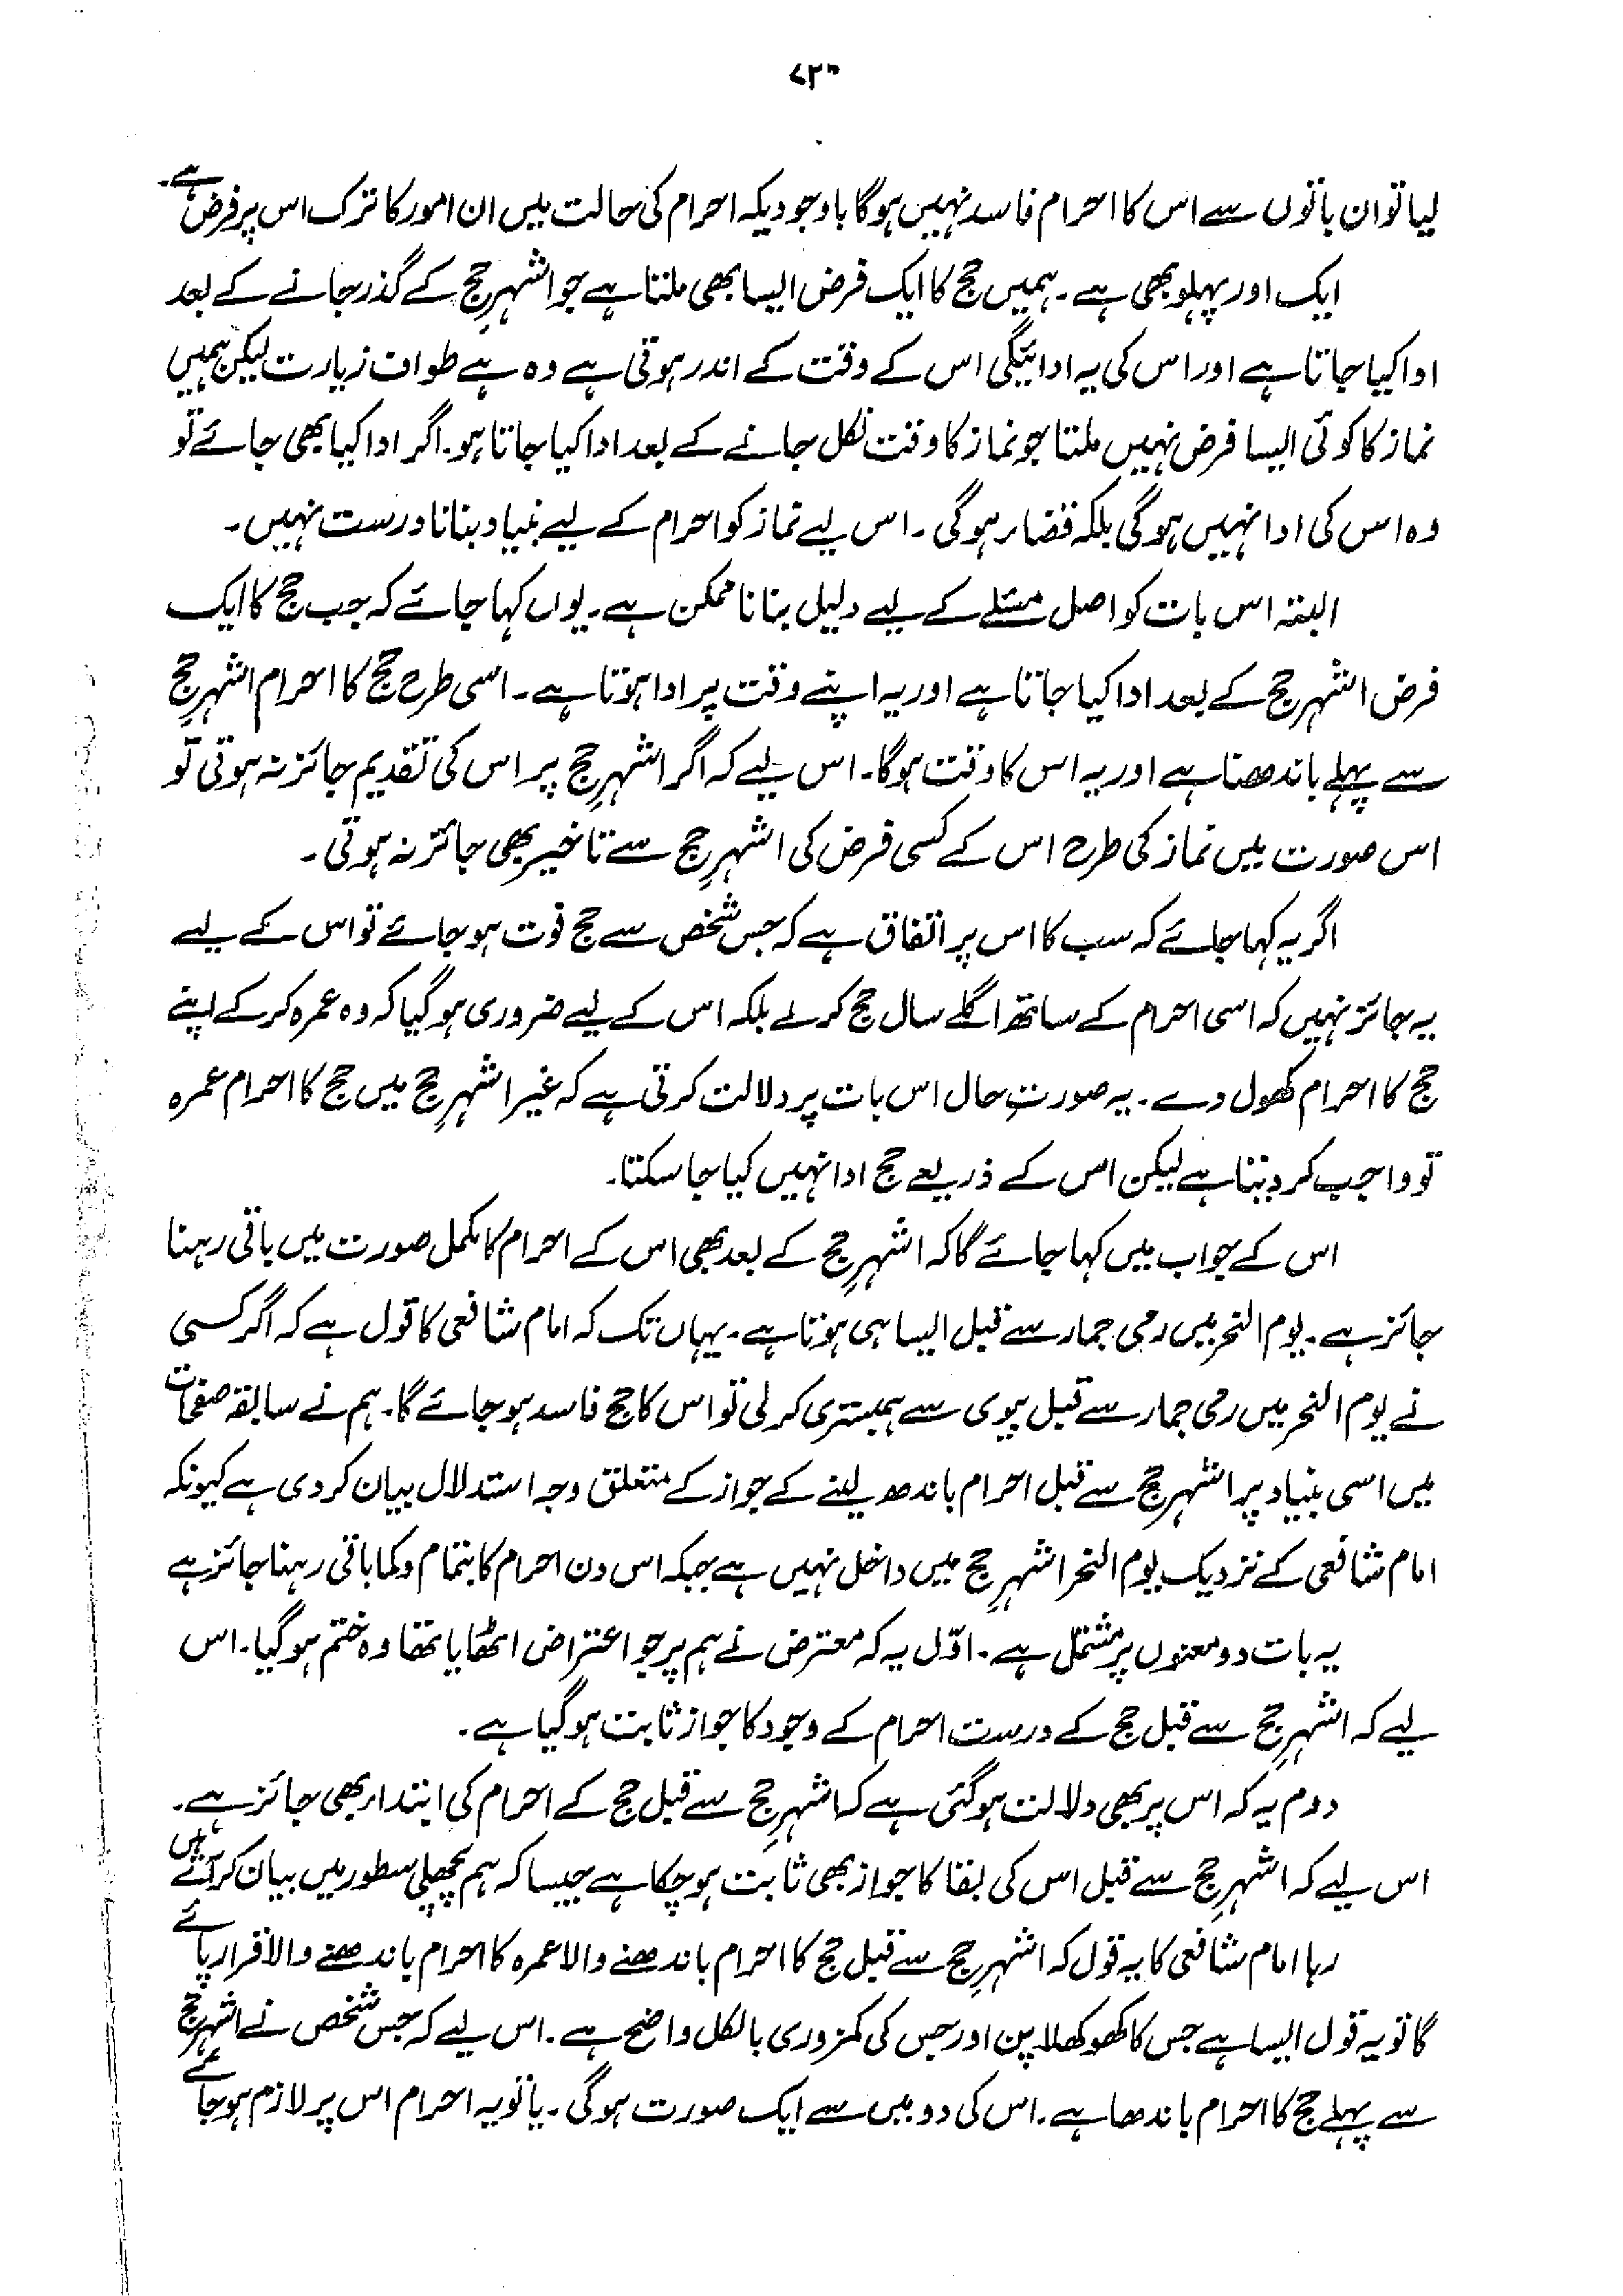 لیا تو ان باتوں سے اس کا احرام فاسد نہیں ہوگا باوجودیکہ احرام کی حالت میں ان امور کا ترک اس پر فرض ہے۔
ایک اور پہلو بھی ہے۔ ہمیں حج کا ایک فرض ایسا بھی ملتا ہے جو اشہرِ حج کے گذر جانے کے بعد
ادا کیا جاتا ہے اور اس کی یہ ادائیگی اس کے وقت کے اندر ہوتی ہے وہ ہے طواف زیارت لیکن ہمیں
نماز کا کوئی ایسا فرض نہیں ملتا جو نماز کا وقت نکل جانے کے بعد ادا کیا جاتا ہو۔ اگر ادا کیا بھی جائے تو
وہ اس کی ادا نہیں ہوگی بلکہ قضاء ہوگی۔ اس لیے نماز کو احرام کے لیے بنیاد بنانا درست نہیں۔
البتہ اس بات کو اصل مسئلے کے لیے دلیل بنانا ممکن ہے۔ یوں کہا جائے کہ جب حج کا ایک
فرض اشہرِ حج کے بعد ادا کیا جاتا ہے اور یہ اپنے وقت پر ادا ہوتا ہے۔ اسی طرح حج کا احرام اشہرِ حج
سے پہلے باندھتا ہے اور یہ اس کا وقت ہوگا۔ اس لیے کہ اگر اشہرِ حج پر اس کی تقدیم جائز نہ ہوتی تو
اس صورت میں نماز کی طرح اس کے کسی فرض کی اشہرِ حج سے تاخیر بھی جائز نہ ہوتی۔
اگر یہ کہا جائے کہ سب کا اس پر اتفاق ہے کہ جس شخص سے حج فوت ہو جائے تو اس کے لیے
یہ جائز نہیں کہ اسی احرام کے ساتھ اگلے سال حج کرلے بلکہ اس کے لیے ضروری ہوگیا کہ وہ عمرہ کرکے اپنے
حج کا احرام کھول دے۔ یہ صورتِ حال اس بات پر دلالت کرتی ہے کہ غیر اشہرِ حج میں حج کا احرام عمرہ
تو واجب کر دیتا ہے لیکن اس کے ذریعے حج ادا نہیں کیا جا سکتا۔
اس کے جواب میں کہا جائے گا کہ اشہرِ حج کے بعد بھی اس کے احرام کا مکمل صورت میں باقی رہنا
جائز ہے۔ یوم النحر میں رمی جمار سے قبل ایسا ہی ہوتا ہے۔ یہاں تک کہ امام شافعی کا قول ہے کہ اگر کسی
نے یوم النحر میں رمی جمار سے قبل بیوی سے ہمبستری کرلی تو اس کا حج فاسد ہو جائے گا۔ ہم نے سابقہ صفحات
میں اسی بنیاد پر اشہرِ حج سے قبل احرام باندھ لینے کے جواز کے متعلق وجہ استدلال بیان کردی ہے کیونکہ
امام شافعی کے نزدیک یوم النحر اشہرِ حج میں داخل نہیں ہے جبکہ اس دن احرام کا بتمام وکما باقی رہنا جائز ہے
یہ بات دو معنوں پر مشتمل ہے۔ اوّل یہ کہ معترض نے ہم پر جو اعتراض اٹھایا تھا وہ ختم ہوگیا۔ اس
لیے کہ اشہرِ حج سے قبل حج کے درست احرام کے وجود کا جواز ثابت ہوگیا ہے۔
دوم یہ کہ اس پر بھی دلالت ہوگئی ہے کہ اشہرِ حج سے قبل حج کے احرام کی ابتداء بھی جائز ہے۔
اس لیے کہ اشہرِ حج سے قبل اس کی بقا کا جواز بھی ثابت ہو چکا ہے جیسا کہ ہم پچھلی سطور میں بیان کر آئے ہیں
رہا امام شافعی کا یہ قول کہ اشہرِ حج سے قبل حج کا احرام باندھنے والا عمرہ کا احرام باندھنے والا قرار پائے
گا تو یہ قول ایسا ہے جس کا کھوکھلا پن اور جس کی کمزوری بالکل واضح ہے۔ اس لیے کہ جس شخص نے اشہرِ حج
سے پہلے حج کا احرام باندھا ہے۔ اس کی دو میں سے ایک صورت ہوگی۔ یا تو یہ احرام اس پر لازم ہو جائے